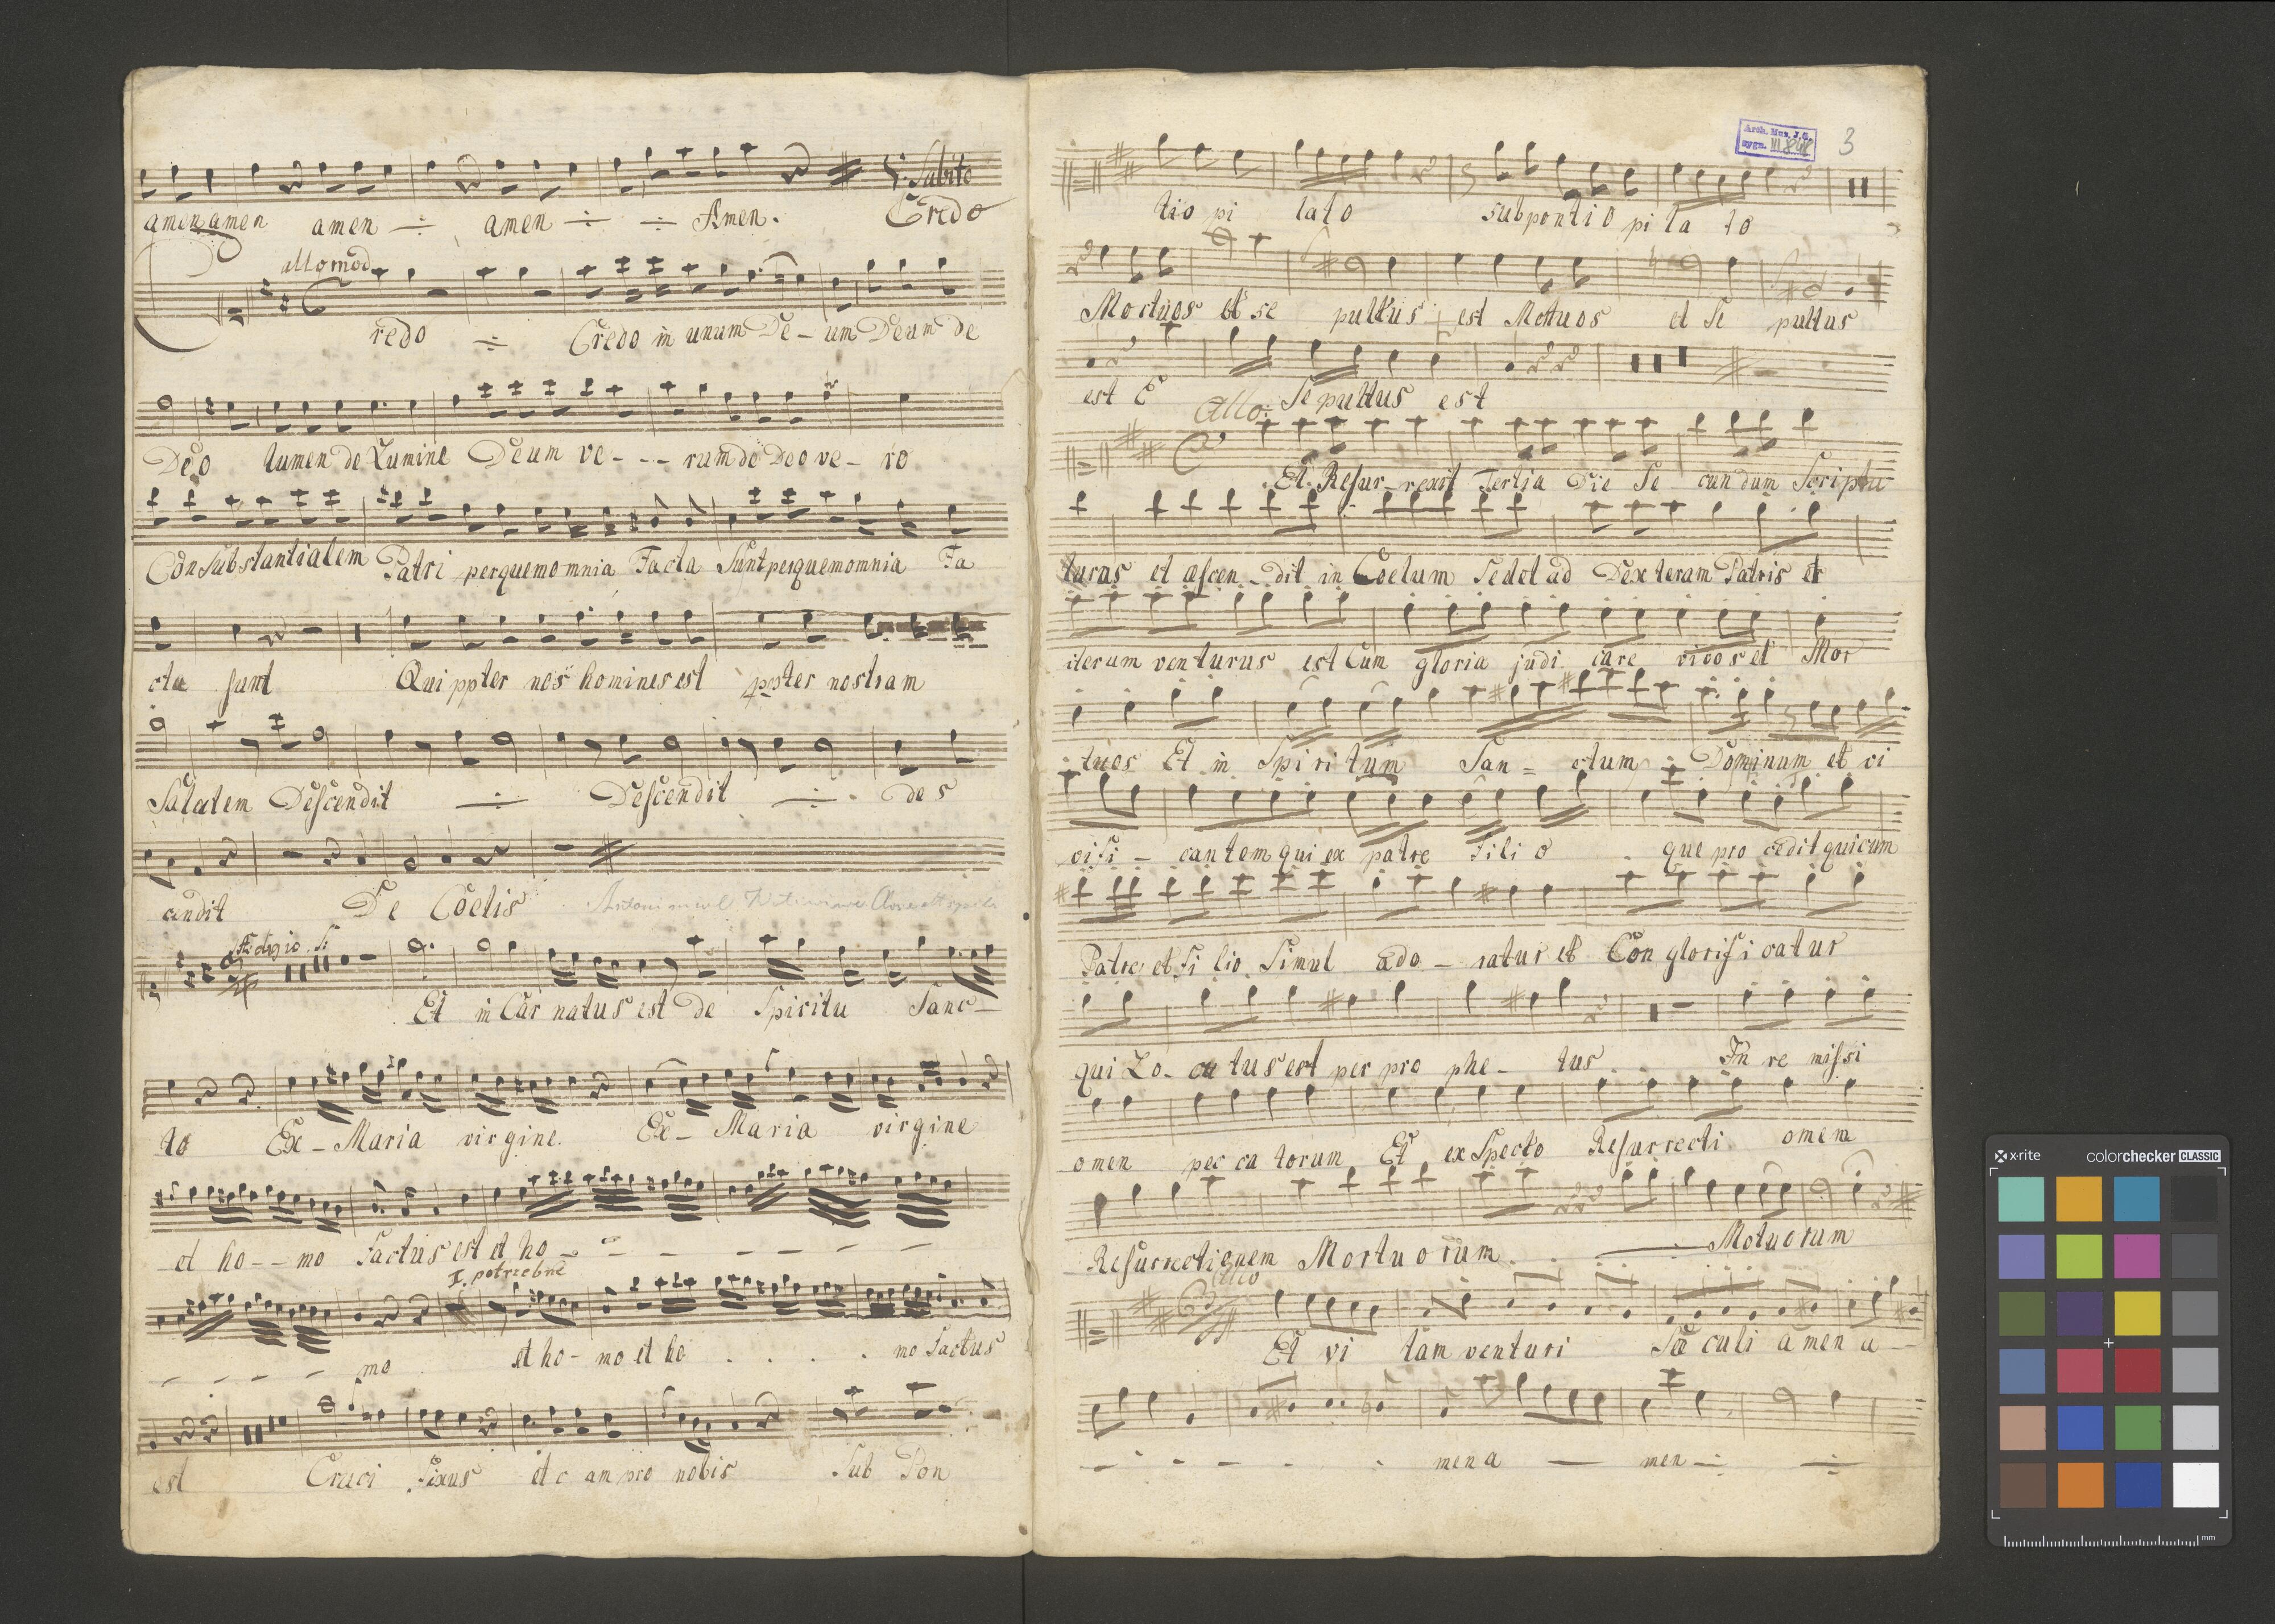 V: Subito
amen amen amen amen Amen. Credo
allo mod
Credo Credo in unum De - um Deum de
Deo lumen de Lumine Deum ve - - - rum de Deo ve - ro
Con Substantialem Patri per quem omnia Facta Sunt per quem omnia Fa
cta sunt Qui ppter nos homines est ppter nostram
Salutem Descendit Descendit des
cendit De Coelis
Adagio
Et in Car natus est de Spiritu Sanc -
to Ex - Maria virgine. Ex - Maria virgine
et ho - - mo Factus est et ho - - - - - - -
I. potrzebne
- - - - mo et ho - mo et ho . . . . mo Factus
est Cruci fixus et c am pro nobis Sub Pon
Arch. Muz. J.G.
sygn. VI
3
tio pi lato sub pontio pi la to
Mortuos et se pultus est Mottuos et Se pultus
est E Se pultus est
Allo:
Et Resur - rexit Tertia Die Se cundum Scriptu
turas et ascen - dit in Coelum Sedet ad Dexteram Patris et
iterum venturus est Cum gloria judi care vivos et Mor
tuos Et in Spiritum San = ctum Dominum et vi
vifi - cantem qui ex patre Filio que pro cedit qui cum
Patre et Fi lio Simul ado - ratur et Con glorifi catur
qui Lo - cu tus est per pro phe - tus In re missi
omen pec ca torum Et ex Specto Resurrecti omem
Resurrectionem Mortuorum Motuorum
Et vi tam venturi Sæ culi amen a -
- - - - men a — men -